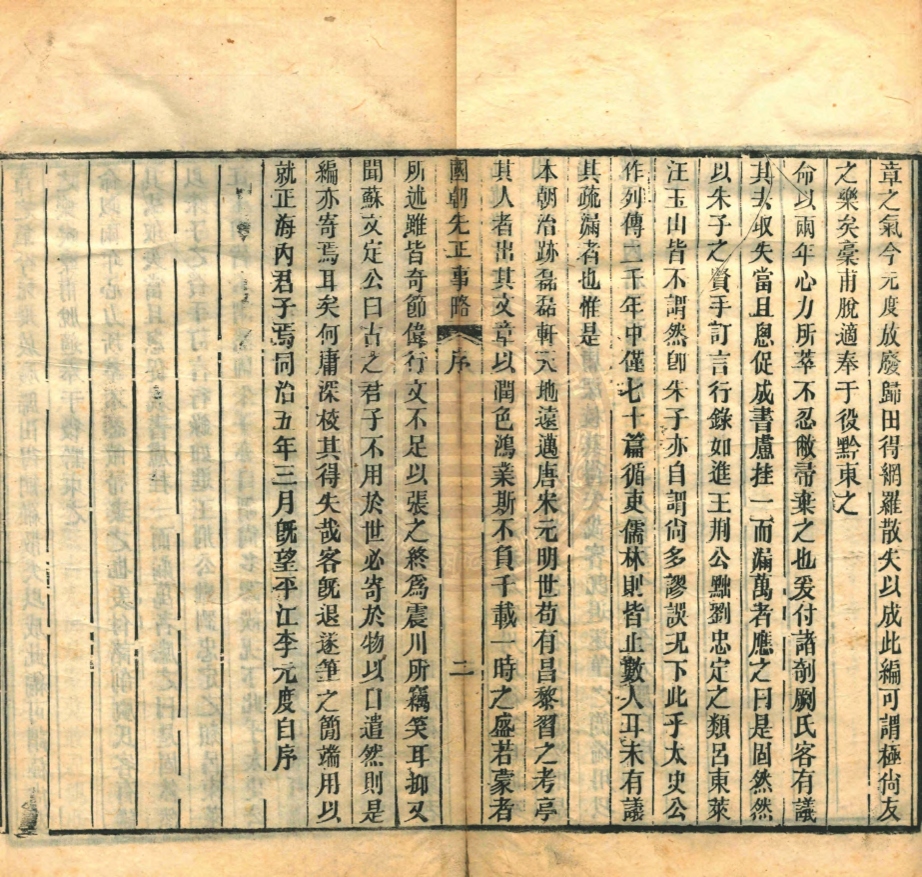 章之氣今元度放廢歸田得網羅散失以成此編可謂極尙友
之樂矣稾甫脫適奉于役黔東之
命以兩年心力所萃不忍敝帚棄之也爰付諸剞劂氏客有議
其去取失當且悤促成書慮挂一而漏萬者應之曰是固然然
以朱子之賢手訂言行錄如進王荆公黜劉忠定之類呂東萊
汪玉山皆不謂然卽朱子亦自謂尙多謬誤況下此乎太史公
作列傳二千年中僅七十篇循吏儒林則皆止數人耳未有議
其疏漏者也惟是
本朝治跡磊磊軒天地遠邁唐宋元明世苟有昌黎習之考亭
其人者出其文章以潤色鴻業斯不負千載一時之盛若蒙者
國朝先正事略 序 二
所述雖皆奇節偉行文不足以張之終爲震川所竊笑耳抑又
聞蘇文定公曰古之君子不用於世必寄於物以自遣然則是
編亦寄焉耳矣何庸深校其得失哉客旣退遂筆之簡端用以
就正海內君子焉同治五年三月旣望平江李元度自序